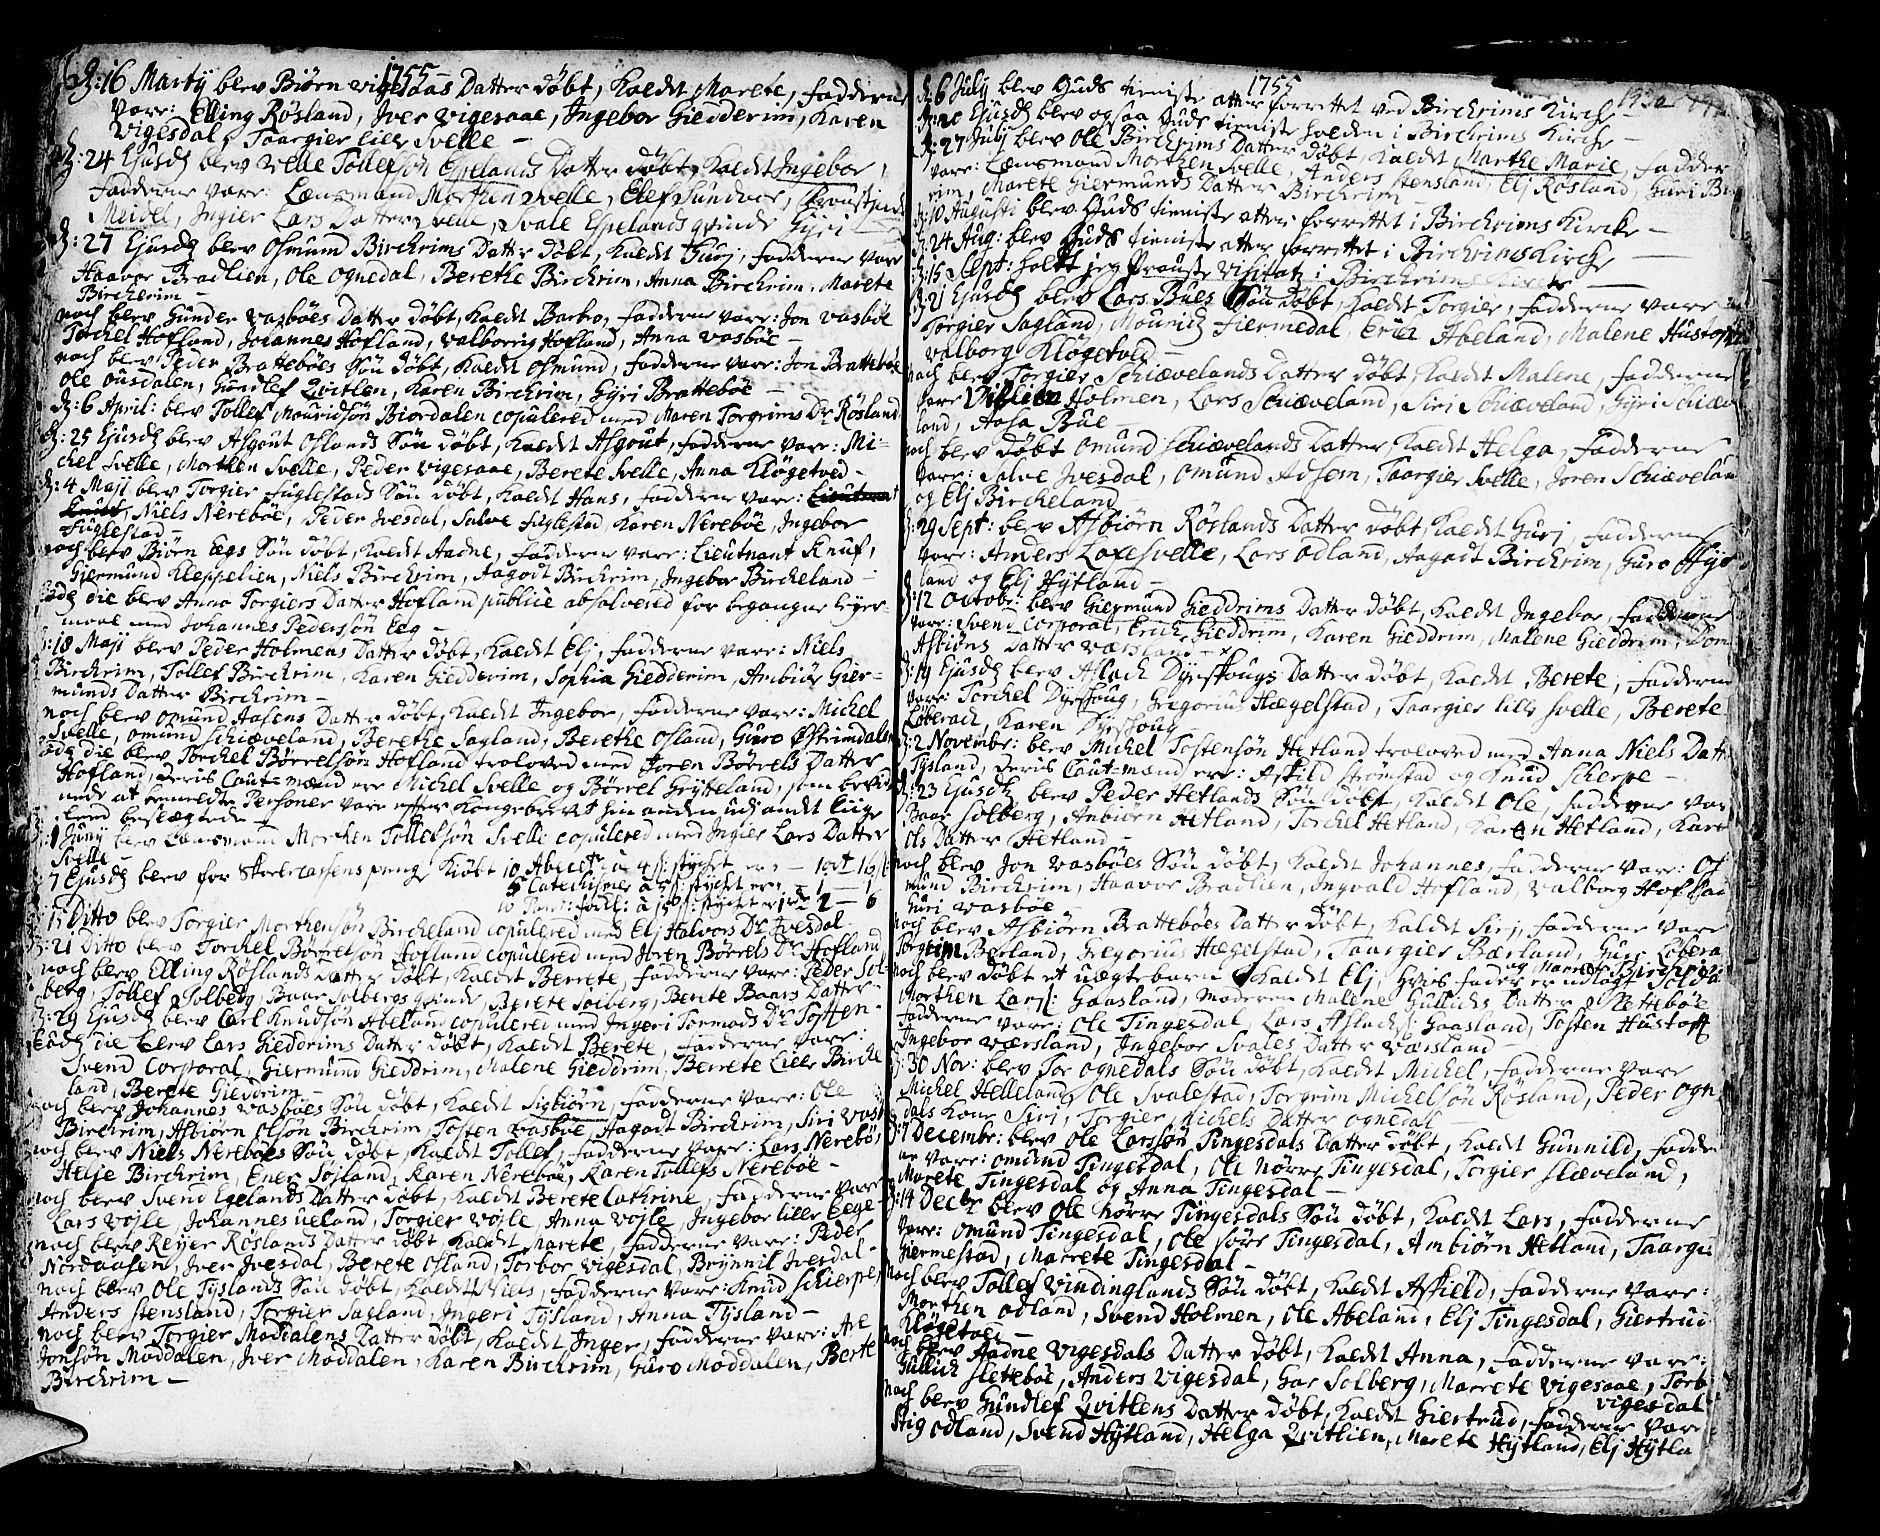 1755
D: 16 Martij blev Biørn vigesaas Datter døbt, kaldt Marete, fadderne
Vare: Elling Røsland, Iver vigesaae, Ingebor Giedderim, Karen
Vigesdal, Taargier lille Svelle —
D: 24 Ejusd: blev velle Tollefsøn Espelands Datter døbt, kaldt Ingebor,
fadderne vare: Lænsmand Morthen Svelle, Elef Sundvor,
Meidel, Ingier Lars Datter Svelle, Svale Espelands qvinde Gyri —
D: 27 Ejusd: blev Osmund Birchrims Datter døbt, kaldt Guri, fadderne vare
Haavor Bradlien, Ole Ognedal, Berethe Birchrim, Anna Birchrim, Marete
Birchrim —
noch blev Gunder vasbøes Datter døbt, kaldt Barbro, fadderne vare: Jon vasbøe
Torchel Hofland, Johannes Hofland, valborrig Hofland, Anna vasbøe —
noch blev Peder Brattebøes Søn døbt, kaldt Osmund, fadderne vare: Jon Brattebøe
Ole Ousdalen, Gundlef Qvitlen, Karen Birchrim, Gyri Brattebøe —
D: 6 April: blev Tollef Mouridsøn Biordalen copulered med Maren Torgrims Dr Røsland
D: 25 Ejusd: blev Asgout Oslands Søn døbt, kaldt Asgout, fadderne vare: Mi=
chel Svelle, Morthen Svelle, Peder vigesaae, Berete Svelle, Anna Kløgetved —
D: 4 Maji blev Torgier Fuglestads Søn døbt, kaldt Hans, fadderne vare: Lieutnant
Knuf, Niels Nerebøe, Peder Ivesdal, Salve Fuglestad, Karen Nerebøe, Ingebor
Fuglestad —
noch blev Biørn Eegs Søn døbt, kaldt Aadne, fadderne vare: Lieutnant Knuf,
Giermund Kleppelien, Niels Birchrim, Aagodt Birchrim, Ingebor Bircheland —
eod: die blev Anna Torgiers Datter Hofland publicè absolvered for begangne leyer=
maal med Johannes Pedersøn Eeg —
D: 18 Maji blev Peder Holmens Datter døbt, kaldt Elj, fadderne vare: Niels
Birchrim, Tollef Birchrim, Karen Giedderim, Sophia Giedderim, Ambiør Gier=
munds Datter Birchrim —
noch blev Omund Aasens Datter døbt, kaldt Ingebor, fadderne vare: Michel
Svelle, Omund Schiæveland, Berethe Sagland, Berethe Osland, Guro Østrimdalen
eod: die blev Torchel Børrelsøn Hofland troloved med Joren Børrels Datter
Hofland, deris Caut=mænd ere Michel Svelle og Børrel Grytteland, som bevid=
nede at bemeldte Personer vare efter kongebrevet hin anden ud andet Liige
leed beslægtede —
D: 1 Junij blev Lænsmand Morthen Tollefsøn Svelle copulered med Ingier Lars Datter
Svelle —
D: 7 Ejusd: blev for Skolecassens penge kiøbt 10 Abecetr: à 4 s: stychet er = — 1 ort 16 s:
5 Catechismer à 5 s: stychet er = — 1 — 1
D: 15 Ditto blev Torgier Morthensøn Bircheland copulered med Elj Halvors Dr Ivesdal
D: 21 Ditto blev Torchel Børrelsøn Hofland copulered med Joren Børrels Dr Hofland
noch blev Elling Røslands Datter døbt, kaldt Berrete, fadderne vare: Peder Sol=
berg, Tollef Solberg, Baar Solbergs qvinde, Berete Solberg, Berete Baars Datter —
D: 29 Ejusd: blev Carl Knudsøn Abeland copulered med Ingeri Tormods Dr Tosten —
Eod: die blev Lars Gieddrims Datter døbt, kaldt Berete, fadderne vare:
Svend Corporal, Giermund Gieddrim, Malene Gieddrim, Berrete Lille Birche
land, Berete Gieddrim —
noch blev Johannes vasbøes Søn døbt, kaldt Sigbiørn, fadderne vare: Ole
Birchrim, Asbiørn Olsøn Birchrim, Tosten vasbøe, Aagadt Birchrim, Siri Vasb
noch blev Niels Nerebøes Søn døbt, kaldt Tollef, fadderne vare: Lars Nerebøe,
Helje Birchrim, Ener Søjland, Karen Nerebøe, Karen Tollefs Nerebøe —
noch blev Svend Egelands Datter døbt, kaldt Berete Cathrine, fadderne var
Lars Vojle, Johannes ueland, Torgier Vojle, Anna Vojle, Ingebor lille Eege
noch blev Reyer Røslands Datter døbt, kaldt Marete, fadderne vare: Peder
Nordaasen, Iver Ivesdal, Berete Osland, Torbor Vigesdal, Brynnil Ivesdal —
noch blev Ole Tyslands Søn døbt, kaldt Niels, fadderne vare: Knud Schierpe,
Anders Stensland, Torgier Sagland, Ingeri Tysland, Anna Tysland —
noch blev Torgier Moddalens Datter døbt, kaldt Inger, fadderne vare: Are
Jonsøn Moddalen, Iver Moddalen, Karen Birchrim, Guro Moddalen, Berte
Birchrim —
1755
D: 6 July blev Guds tieniste atter forrettet ved Birchrims Kirche —
Ejusd: blev ogsaa Guds tieniste holden i Birchrims Kirche —
D: 27 July blev Ole Birchrims Datter døbt, kaldt Marthe Marie, fadder
vare: Lænsmand Morthen Svelle, Anders Stensland, Elj Røsland, Guri Bi
rim, Marete Giermunds Datter Birchrim —
D: 10 Augusti blev Guds tieniste atter forrettet i Birchrims Kirche —
D: 24 Aug: blev Guds tieniste atter forrettet i Birchrims Kirche
D: 15 Sept: holdt jeg Prouste Visitatz i Birchrims Kirche —
D: 21 Ejusd: blev Lars Bues Søn døbt, kaldt Torgier, fadderne vare
Torgier Sagland, Mouridz Fiermedal, Erich Abeland, Malene Hustoft
valborg Kløgetved —
noch blev Torgier Schiævelands Datter døbt, kaldt Malene, fadderne
vare Villum Holmen, Lars Schiæveland, Siri Schiæveland, Gyri Schiæv
land, Aasa Bue —
noch blev døbt Omund Schiævelands Datter, kaldt Helga, fadderne
vare: Salve Ivesdal, Omund Adsem, Taargier Svelle, Joren Schiævelan
og Elj Bircheland —
D: 29 Sept: blev Asbiørn Røslands Datter døbt, kaldt Guri, fadderne
vare: Anders Laxesvelle, Lars Odland, Aagadt Birchrim, Guro Hyt
land og Elj Hÿtland —
D: 12 Octobr: blev Giermund Gieddrims Datter døbt, kaldt Ingebor, fadderne
vare: Svend Corporal, Erich Gieddrim, Karen Gieddrim, Malene Gieddrim,
Asbiøns Datter Værsland —
D: 19 Ejusd: blev Aslach Dyrskougs Datter døbt, kaldt Berete, fadderne
vare: Torchel Dyrskoug, Gregorius Hægelstad, Taargier lille Svelle, Berete
Løberach, Karen Dyrskoug
D: 2 Novembr: blev Michel Tostensøn Hetland troloved med Anna Niels Datt
Tysland, deris Caut=mænd ere: Askild Strømstad og Knud Scherpe —
D: 23 Ejusd: blev Peder Hetlands Søn døbt, kaldt Ole, fadderne var
Baar Solberg, Anbiørn Hetland, Torchel Hetland, Karen Hetland, Kare
Ols Datter Hetland —
noch blev Jon vasbøes Søn døbt, kaldt Johannes, fadderne vare: Os
mund Birchrim, Haavor Bradlien, Ingvald Hofland, valborg Hoflan
Guri vasbøe —
noch blev Asbiørn Brattebøes Datter døbt, kaldt Siri, fadderne vare
Torgrim Berland, Gregorius Hægelstad, Taargier Bærland, Guri Løbera
og Marrete Birchrim
noch blev døbt et uægte barn, kaldt Elj, hvis fader er udlagt Solda
Morthen Lars: Gaasland, moderen Malene Gullichs Datter Slettebøe
fadderne vare: Ole Tingesdal, Lars Aslachs: Gaasland, Tosten Hustoft
Ingebor værsland, Ingebor Svales Datter værsland —
D: 30 Nov: blev Tor Ognedals Søn døbt, kaldt Michel, fadderne vare
Michel Helleland, Ole Svalestad, Torgrim Michelsøn Røsland, Peder Ogn
dals kone Siri, Torgier Michels Datter Ognedal —
D: 7 Decembr: blev Ole Larssøn Tingesdals Datter døbt, kaldt Gunnild, fadde
ne vare: Omund Tingesdal, Ole Nørre Tingesdal, Torgier Slæveland,
Marete Tingesdal og Anna Tingesdal —
D: 14 Decbr blev Ole Nørre Tingesdals Søn døbt, kaldt Lars, fadderne
vare: Omund Tingesdal, Ole Søre Tingesdal, Ambiørn Hetland, Taargie
Giermestad, Marrete Tingesdal —
noch blev Tollef Vindinglands Søn døbt, kaldt Askield, fadderne vare:
Morthen Odland, Svend Holmen, Ole Abeland, Elj Tingesdal, Giertrud
Kløgetvei —
noch blev Aadne Vigesdals Datter døbt, kaldt Anna, fadderne vare:
Gullich Slettebøe, Anders Vigesdal, Gar Solberg, Marrete Vigesaae, Torb
Vigesdal
noch blev Gundlef Qvitlens Datter døbt, kaldt Giertrud, fadderne vare
Stig Odland, Svend Hÿtland, Helga Qvitlien, Marete Hÿtland, Elj Hÿtla